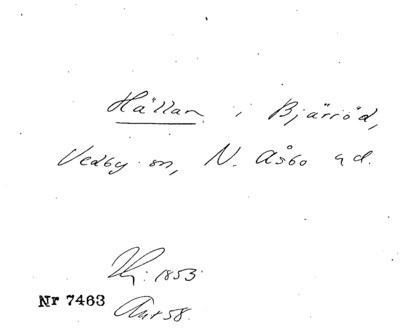 Hällan i Bjärröd,
Vedby sn, N. Åsbo hd.
: 1853
Nr 7463
58.